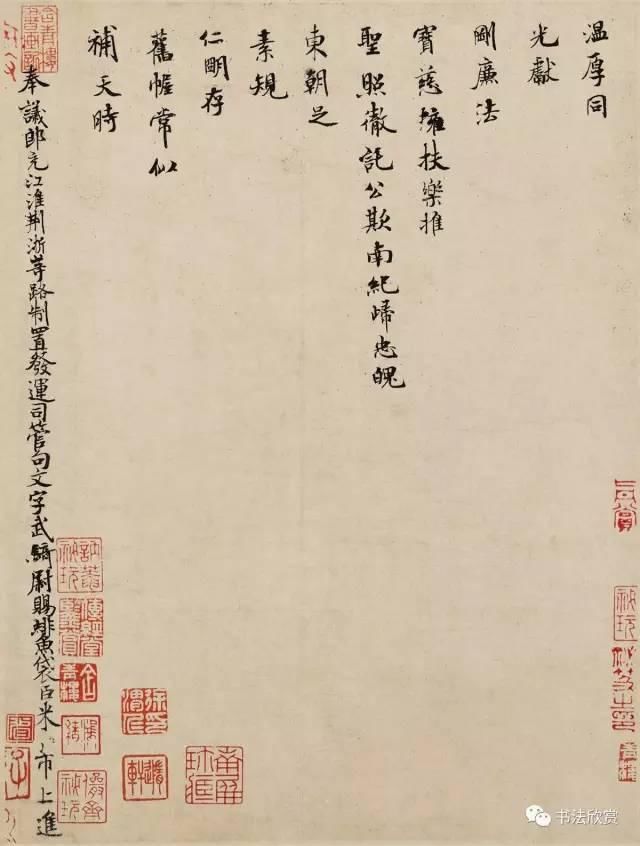 温厚同
光獻
剛廉法
寶慈擁扶樂推
聖照徹託公欺南紀歸忠魄
東朝足
素規
仁明存
舊幄常似
補天時
奉議郎充江淮荆浙等路制置發運司管句文字武騎尉賜緋魚袋臣米芾上進
书法欣赏